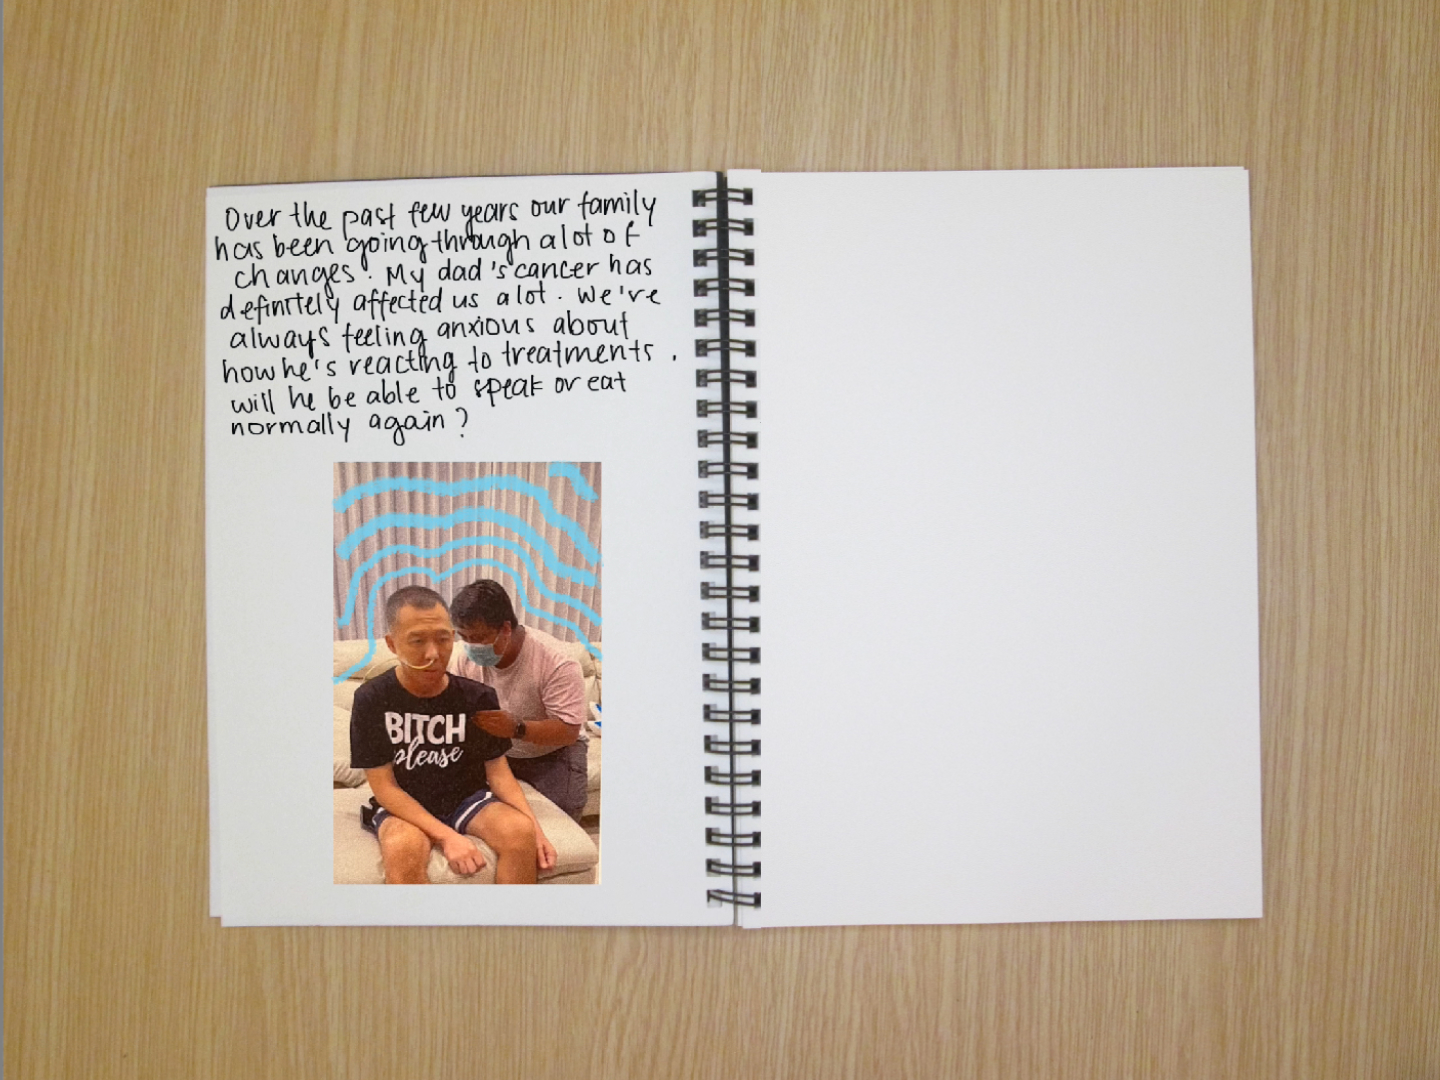 Over the past few years our family
has been going through alot of
changes. My dad's cancer has
definitely affected us alot. We're
always feeling anxious about
how he's reacting to treatments.
will he be able to speak or eat
normally again?
BITCH
please